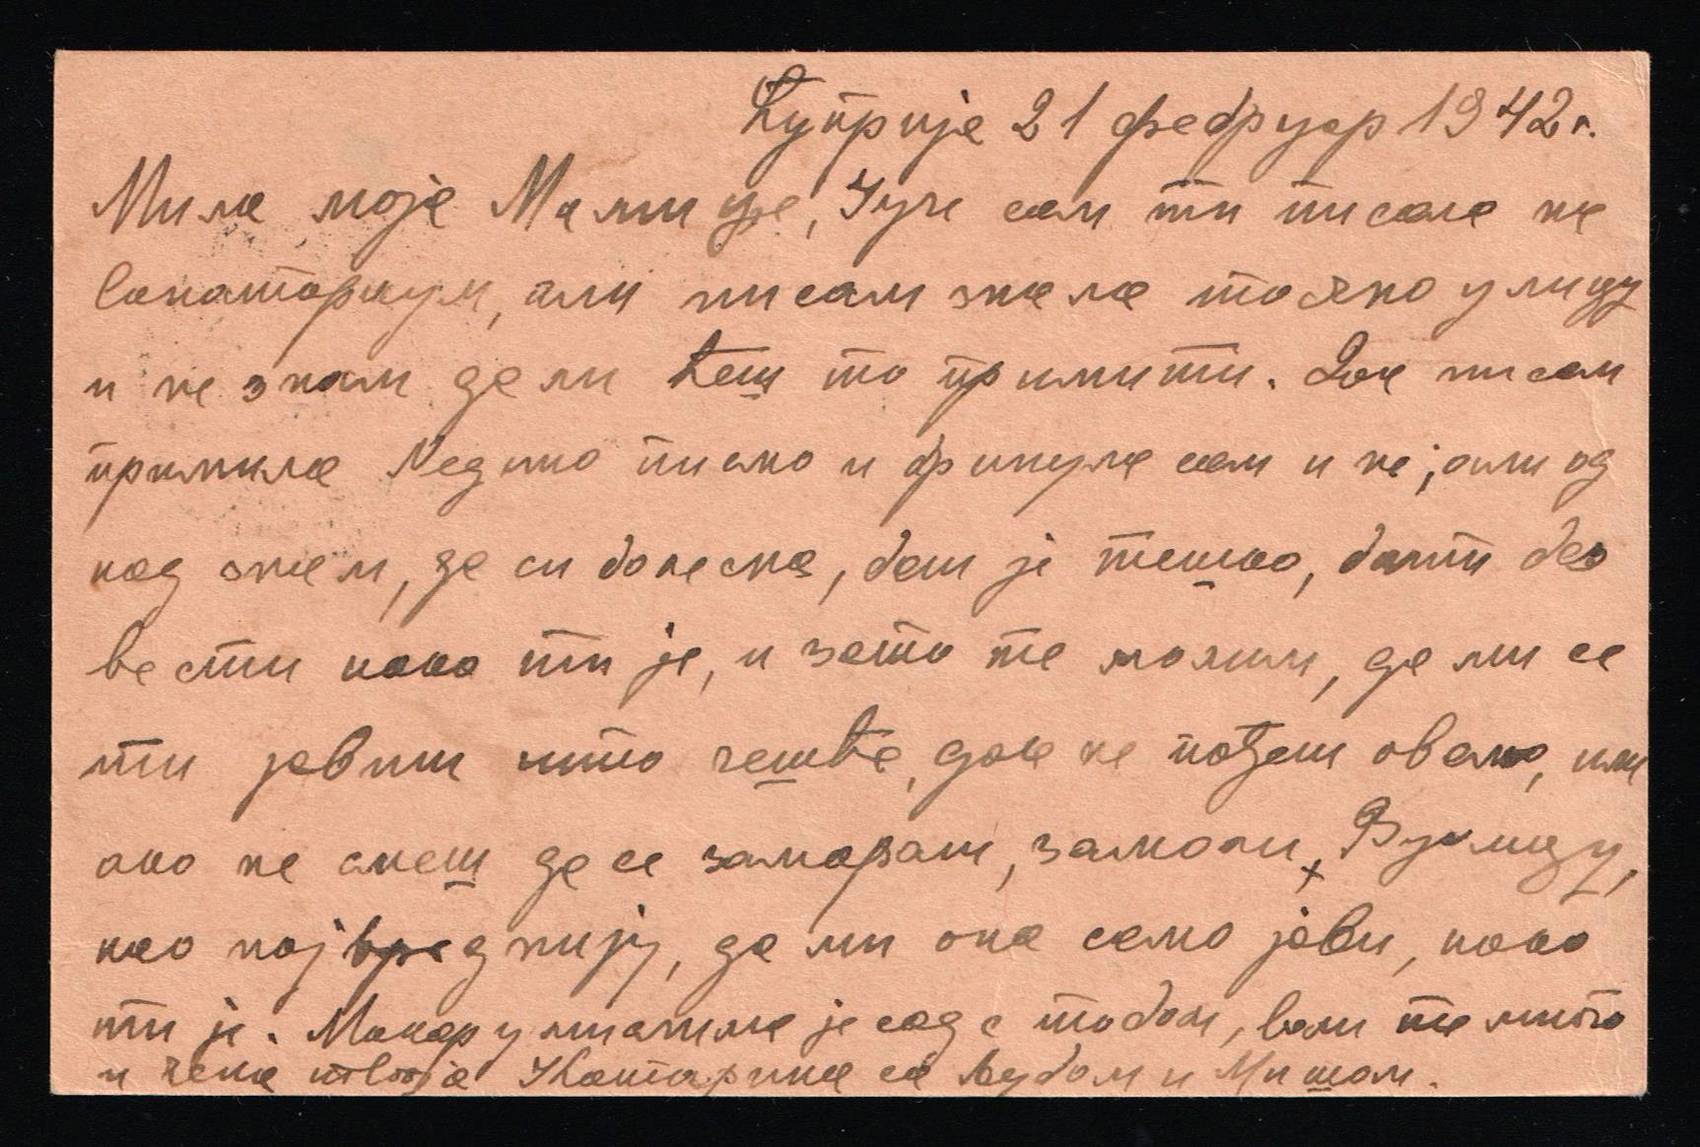 Ћуприја 21 фебруар 1942 г.
Мила моја Мамице, Јуче сам ти писала на
Санаториум, али нисам знала тачно улицу
и не знам да ли ћеш то примити. Док нисам
примила Недино писмо и бринула сам и не, али од
кад знам, да си болесна, баш је тешко, бити без
вести како ти је, и зато те молим, да ми се
ти јавиш што чешће, док не пођеш овамо, или
ако не смеш да се замараш, замоли Вукицу,
као највреднију, да ми она само јави, како
ти је. Макар у мислима је сад с тобом, воли те много
и чека твоја Катарина са Љубом и Мишом.